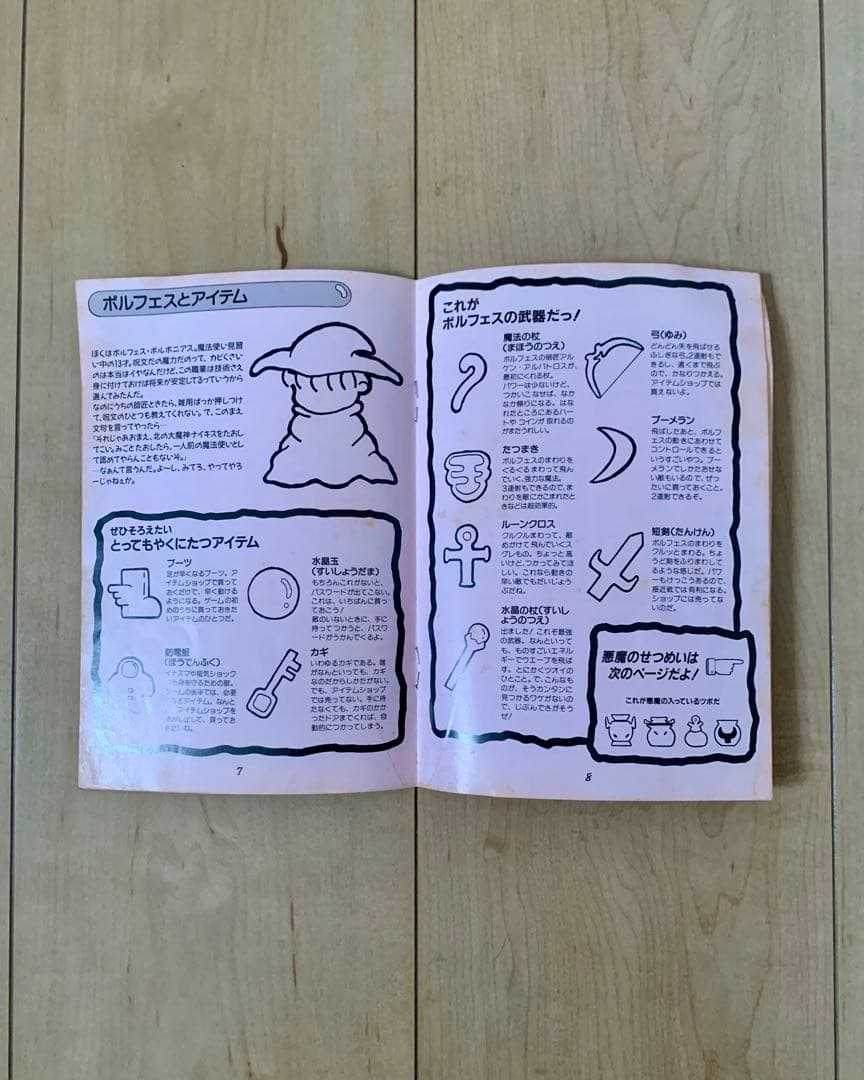 ポルフェスとアイテム
ぼくはポルフェス・ポルボニアス。魔法使い見習
い中の13才。呪文だの魔力だのって、カビくさい
のは本当はイヤなんだけど、この職業は技術さえ
身に付けておけば将来が安定してるっていうから
選んでみたんだ。
なのにうちの師匠ときたら、雑用ばっか押しつけ
て、呪文のひとつも教えてくれない。で、このまえ
文句を言ってやったら…
『それじゃあおまえ、北の大魔神ナイキスをたおし
てこい。みごとたおしたら、一人前の魔法使いとし
て認めてやらんこともないぞ。』
…なぁんて言うんだ。よーし、みてろ、やってやろ
ーじゃねぇか。
ぜひそろえたい
とってもやくにたつアイテム
ブーツ
足が早くなるブーツ。ア
イテムショップで買って
おくだけで、早く動ける
ようになる。ゲームの初
めのうちに買っておきた
いアイテムのひとつだ。
水晶玉
(すいしょうだま)
もちろんこれがないと、
パスワードが出てこない。
これは、いちばんに買っ
ておこう!
敵のいないときに、手に
持ってつかうと、パスワ
ードがうかんでくるよ。
防電服
(ぼうでんふく)
イナズマや電気ショック
から身を守るための服。
ゲームの後半では、必要
なるアイテム。なんと
アイテムショップを
さがし出して、買ってお
きたいね。
カギ
いわゆるカギである。誰
がなんといっても、カギ
なのだからしかたがない。
でも、アイテムショップ
では売ってない。手に持
たなくても、カギのかか
ったドアまでくれば、自
動的につかってしまう。
7
これが
ポルフェスの武器だっ!
魔法の杖
(まほうのつえ)
ポルフェスの師匠アル
ケン・アルバトロスが、
最初にくれる杖。
パワーは少ないけど、
つかいこなせば、なか
なか頼りになる。はな
れたところにあるハー
トや コインが 取れるの
がまたうれしい。
たつまき
ポルフェスのまわりを
ぐるぐるまわって飛ん
でいく、強力な魔法。
3連射もできるので、ま
わりを敵にかこまれたと
きなどは超効果的。
ルーンクロス
クルクルまわって、敵
めがけて 飛んでいくス
グレもの。ちょっと高
いけど、つかってみてほ
しい。これなら動きの
早い敵でもだいじょう
ぶだね。
水晶の杖(すいしょ
ょうのつえ)
出ました! これぞ最強
の武器。なんといって
も、ものすごいエネル
ギーでウエーブを飛ば
す。とにかくツオイの
ひとこと。で、こんなも
のが、そうカンタンに
見つかるワケがないの
で、じぶんでさがそう
ぜ!
弓(ゆみ)
どんどん矢を飛ばせる
ふしぎな弓。2連射もで
きるし、遠くまで飛ぶの
で、かなりつかえる。
アイテムショップでは
買えないよ。
ブーメラン
飛ばしたあと、ポルフ
ェスの動きにあわせて
コントロールできると
いうすごいやつ。ブー
メランでしかたおせな
い敵もいるので、ぜっ
たいに買っておくこと。
2連射できるぞ。
短剣(たんけん)
ポルフェスのまわりを
クルッとまわる。ちょ
うど剣をふりまわして
るような感じだ。パワ
ーもけっこうあるので、
接近戦では有利になる。
ショップには売ってな
いのだ。
悪魔のせつめいは
次のページだよ!
これが悪魔の入っているツボだ
8